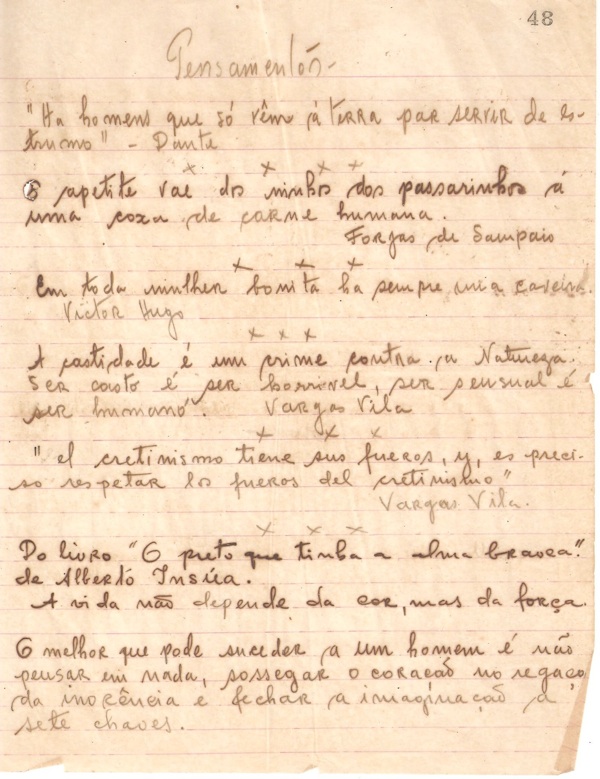 48
Pensamentos-
"Ha homens que só vêm á terra par servir de es-
trumo" - Dante
x x x x
O apetite vae dos ninhos dos passarinhos á
uma coxa de carne humana.
Forjas de Sampaio
x x x
Em toda mulher bonita ha sempre uma caveira.
Victor Hugo
x x x
A castidade é um crime contra a Natureza.
Ser casto é ser horrivel, ser sensual é
ser humano". Vargas Vila
x x x
"el cretinismo tiene sus fueros, y, es preci-
so respetar los fueros del cretinismo"
Vargas Vila.
x x x
Do livro "O preto que tinha a alma branca".
de Alberto Insúa.
A vida não depende da cor, mas da força.
O melhor que pode suceder a um homem é não
pensar em nada, sossegar o coracão no regaço
da inocência e fechar a imaginação a
sete chaves.